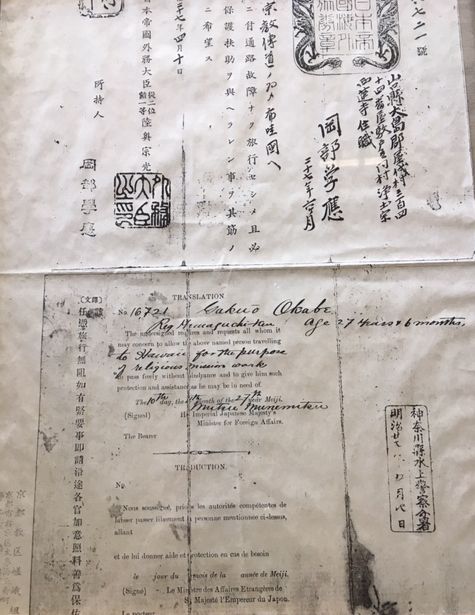 七二一號
山口縣大島郡屋代村三百四
西蓮寺住職
岡部学應
二十七年六ヶ月
宗教傳道ノ為メ布哇國ヘ
ニ付通路故障ナク旅行セシメ且必
保護扶助ヲ與ヘラレン事ヲ其筋ノ
ニ希望ス
七年四月十日
本帝國外務大臣從二位勲一等陸奥宗光
所持人
岡部學應
外務大臣之印
TRANSLATION
No 16721 Gakuo Okabe
Ken Age 27 years & 6 months,
The undersigned requires and requests all whom it
may concern to allow the above named person travelling
to Hawaii for the purpose
of religious mission work
to pass freely without hindrance and to give him such
protection and assistance as he may be in need of.
The 10th day, the 4th month of the 27th year Meiji.
(Signed) Mutsu Munemitsu
His Imperial Japanese Majesty's
Minister for Foreign Affairs.
The Bearer
TRADUCTION.
No
Nous soussigné, prions les autorités compétentes de
laisser passer librement la personne mentionnée ci-dessus,
allant
et de lui donner aide et protection en cas de besoin
le jour du mois de la année de Meiji.
(Signé) Le Ministre des Affaires Etrangères de
Sa Majesté l'Empereur du Japon.
Le porteur
神奈川縣水上警察分署
明治廿 月 日
〔文譯〕
任便旅行無阻如有緊要事即請沿途各官加意照料善為保佑
京都教区